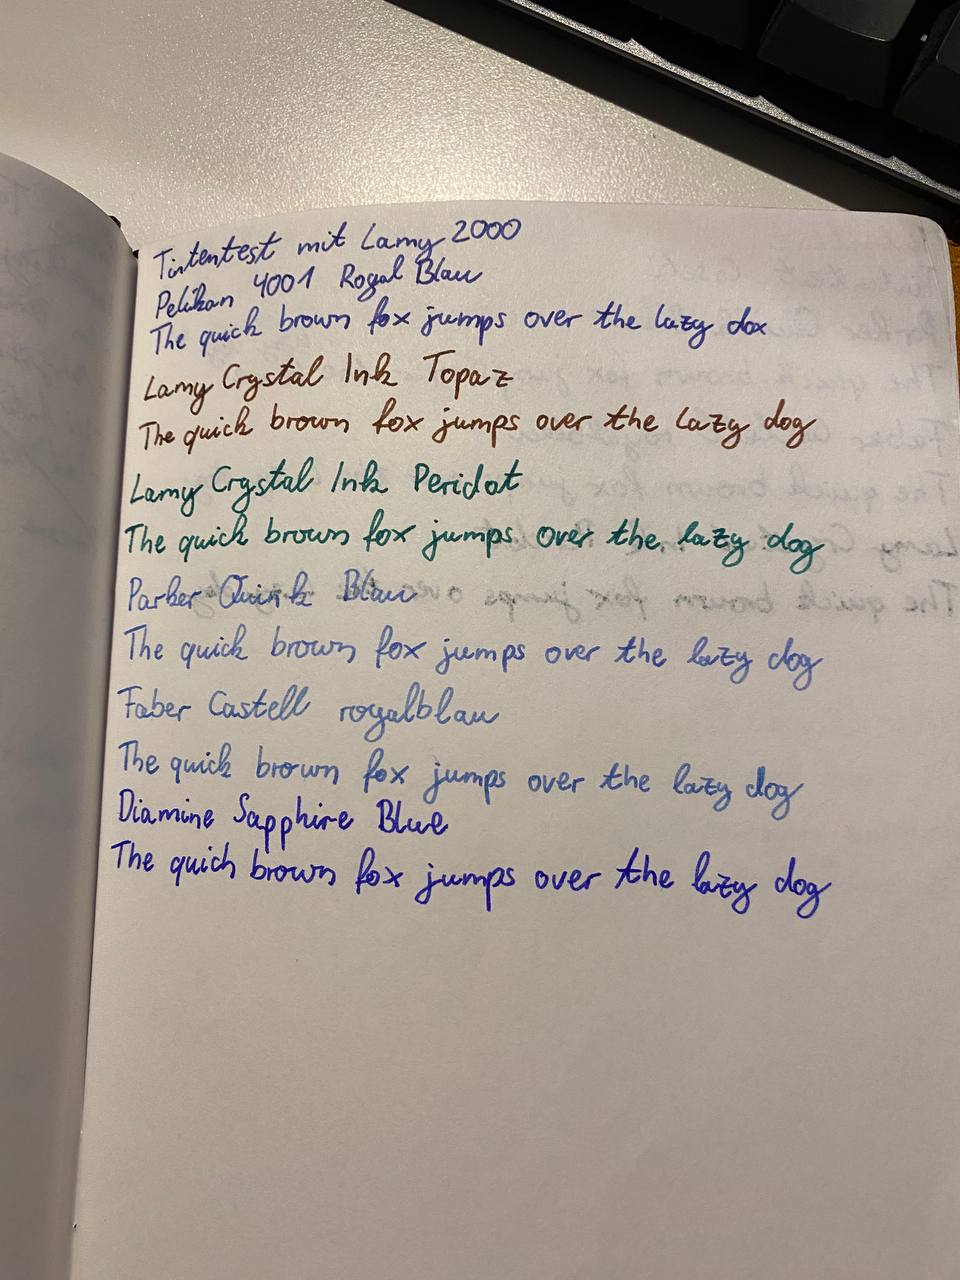 Tintentest mit Lamy 2000
Pelikan 4001 Royal Blau
The quick brown fox jumps over the lazy dox
Lamy Crystal Ink Topaz
The quick brown fox jumps over the lazy dog
Lamy Crystal Ink Peridot
The quick brown fox jumps over the lazy dog
Parker Quink Blau
The quick brown fox jumps over the lazy dog
Faber Castell royalblau
The quick brown fox jumps over the lazy dog
Diamine Sapphire Blue
The quich brown fox jumps over the lazy dog